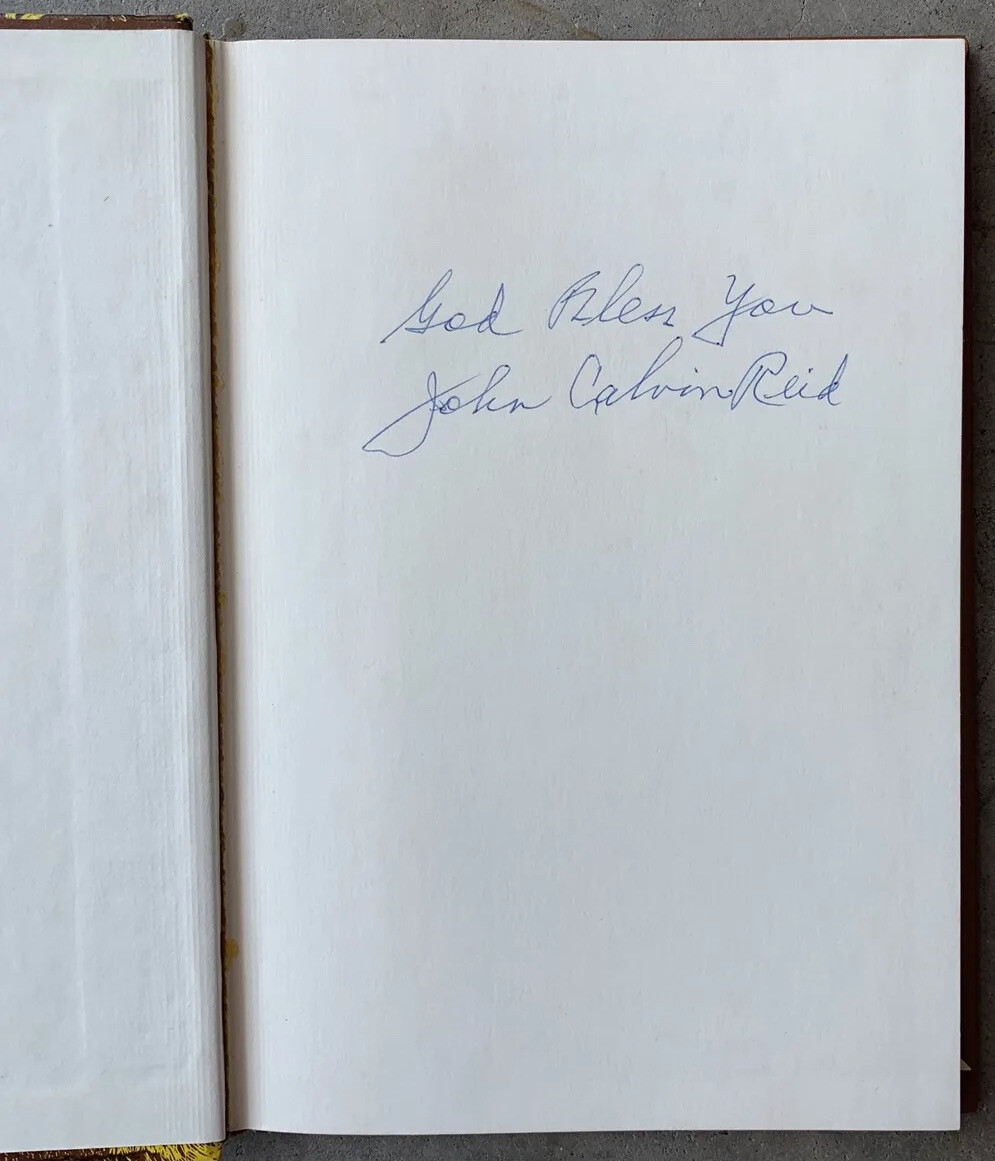 God Bless You
John Calvin Reid